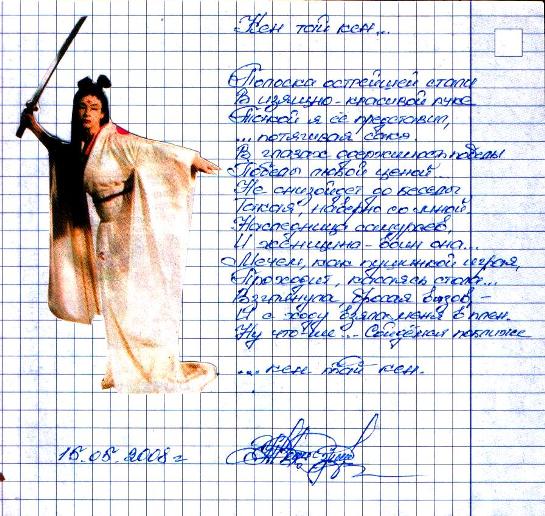 Кен тай кен...
Полоска острейшей стали
В изящно-красивой руке
Такой я её представил,
...потягивая сакэ.
В глазах одержимость победы
Победы любой ценой
Не снизойдет до беседы
Такая, наверно со мной.
Наследница самураев,
И женщина - воин она...
Мечем, как пушинкой играя,
Проходит, касаясь стола...
Взглянула, бросая вызов, -
И с ходу взяла меня в плен.
Ну что же... Сойдёмся поближе
...кен тай кен.
15.05.2008 г